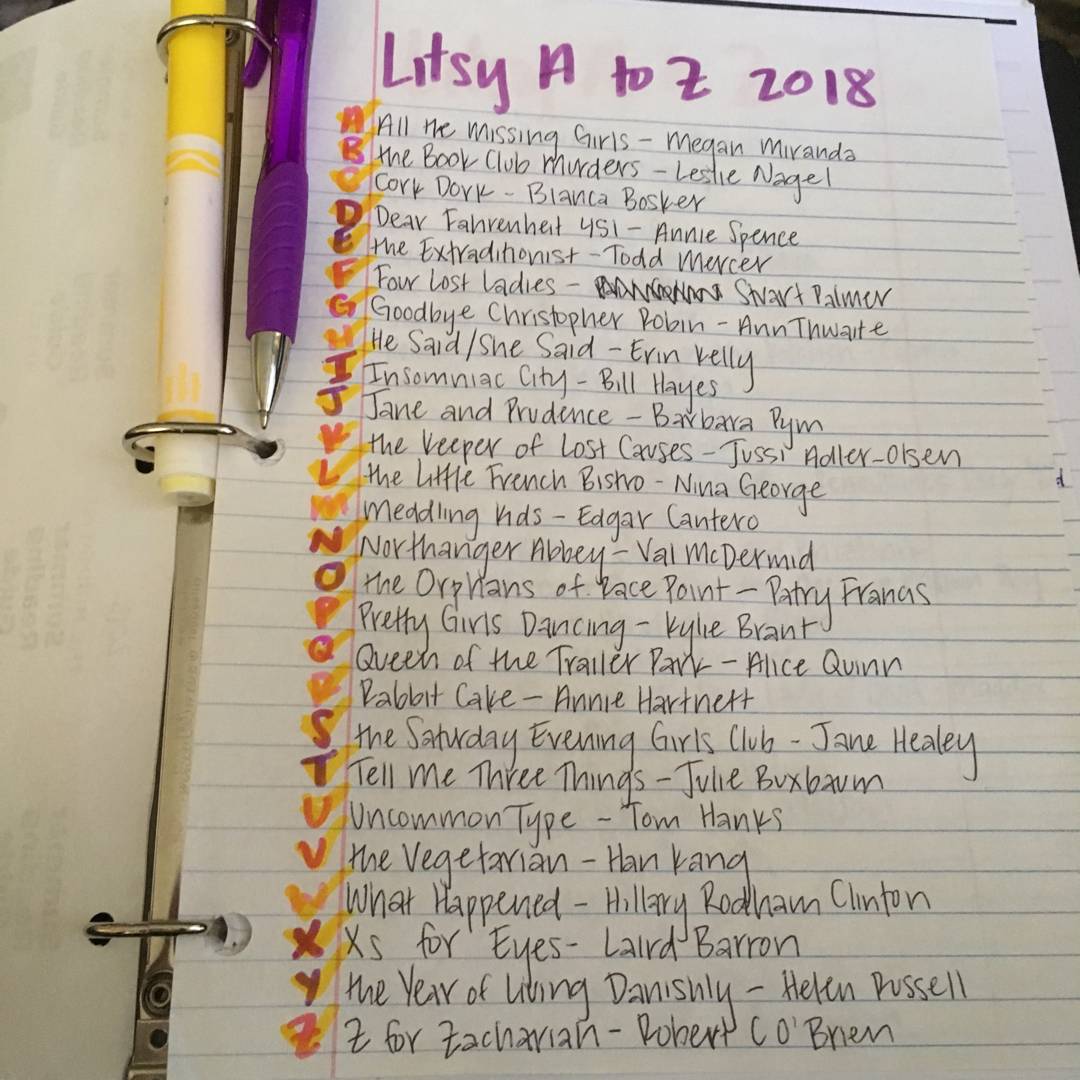 Litsy A to Z 2018
A All the Missing Girls - Megan Miranda
B the Book Club Murders - Leslie Nagel
C Cork Dork - Bianca Bosker
D Dear Fahrenheit 451 - Annie Spence
E the Extraditionist - Todd Mercer
F Four Lost Ladies - Stuart Palmer
G Goodbye Christopher Robin - Ann Thwaite
H He Said/She Said - Erin Kelly
I Insomniac City - Bill Hayes
J Jane and Prudence - Barbara Pym
K the Keeper of Lost Causes - Jussi Adler-Olsen
L the Little French Bistro - Nina George
M Meddling Kids - Edgar Cantero
N Northanger Abbey - Val McDermid
O the Orphans of Race Point - Patry Francis
P Pretty Girls Dancing - Kylie Brant
Q Queen of the Trailer Park - Alice Quinn
R Rabbit Cake - Annie Hartnett
S the Saturday Evening Girls Club - Jane Healey
T Tell Me Three Things - Julie Buxbaum
U Uncommon Type - Tom Hanks
V the Vegetarian - Han Kang
W What Happened - Hillary Rodham Clinton
X Xs for Eyes - Laird Barron
Y the Year of Living Danishly - Helen Russell
Z Z for Zachariah - Robert C O'Brien